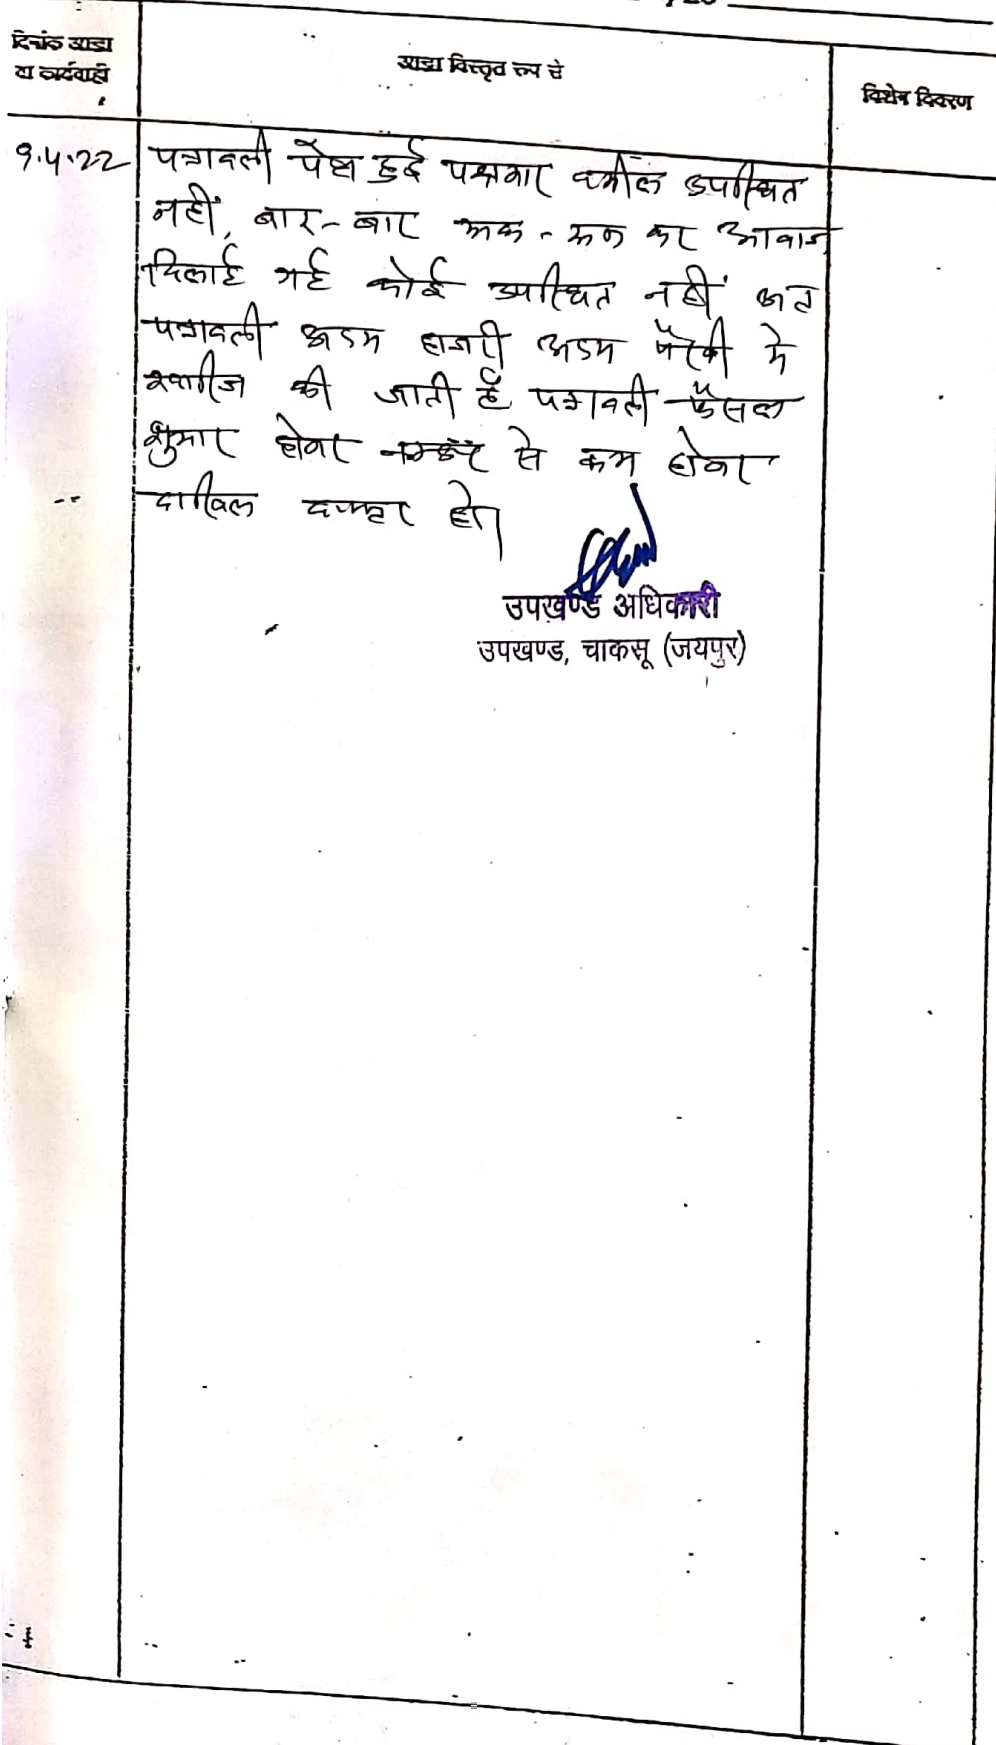 दिनांक आज्ञा
या कार्यवाही
आज्ञा विस्तृत रूप से
विशेष विवरण
9.4.22
पत्रावली पेश हुई पक्षकार वकील उपस्थित
नहीं, बार-बार रूक-रूक कर आवाज
दिलाई गई कोई उपस्थित नहीं अत
पत्रावली अदम हाजरी अदम पैरवी मे
खारीज की जाती है पत्रावली फैसल
शुमार होकर नम्बर से कम होकर
दाखिल दफ्तर हो।
उपखण्ड अधिकारी
उपखण्ड, चाकसू (जयपुर)